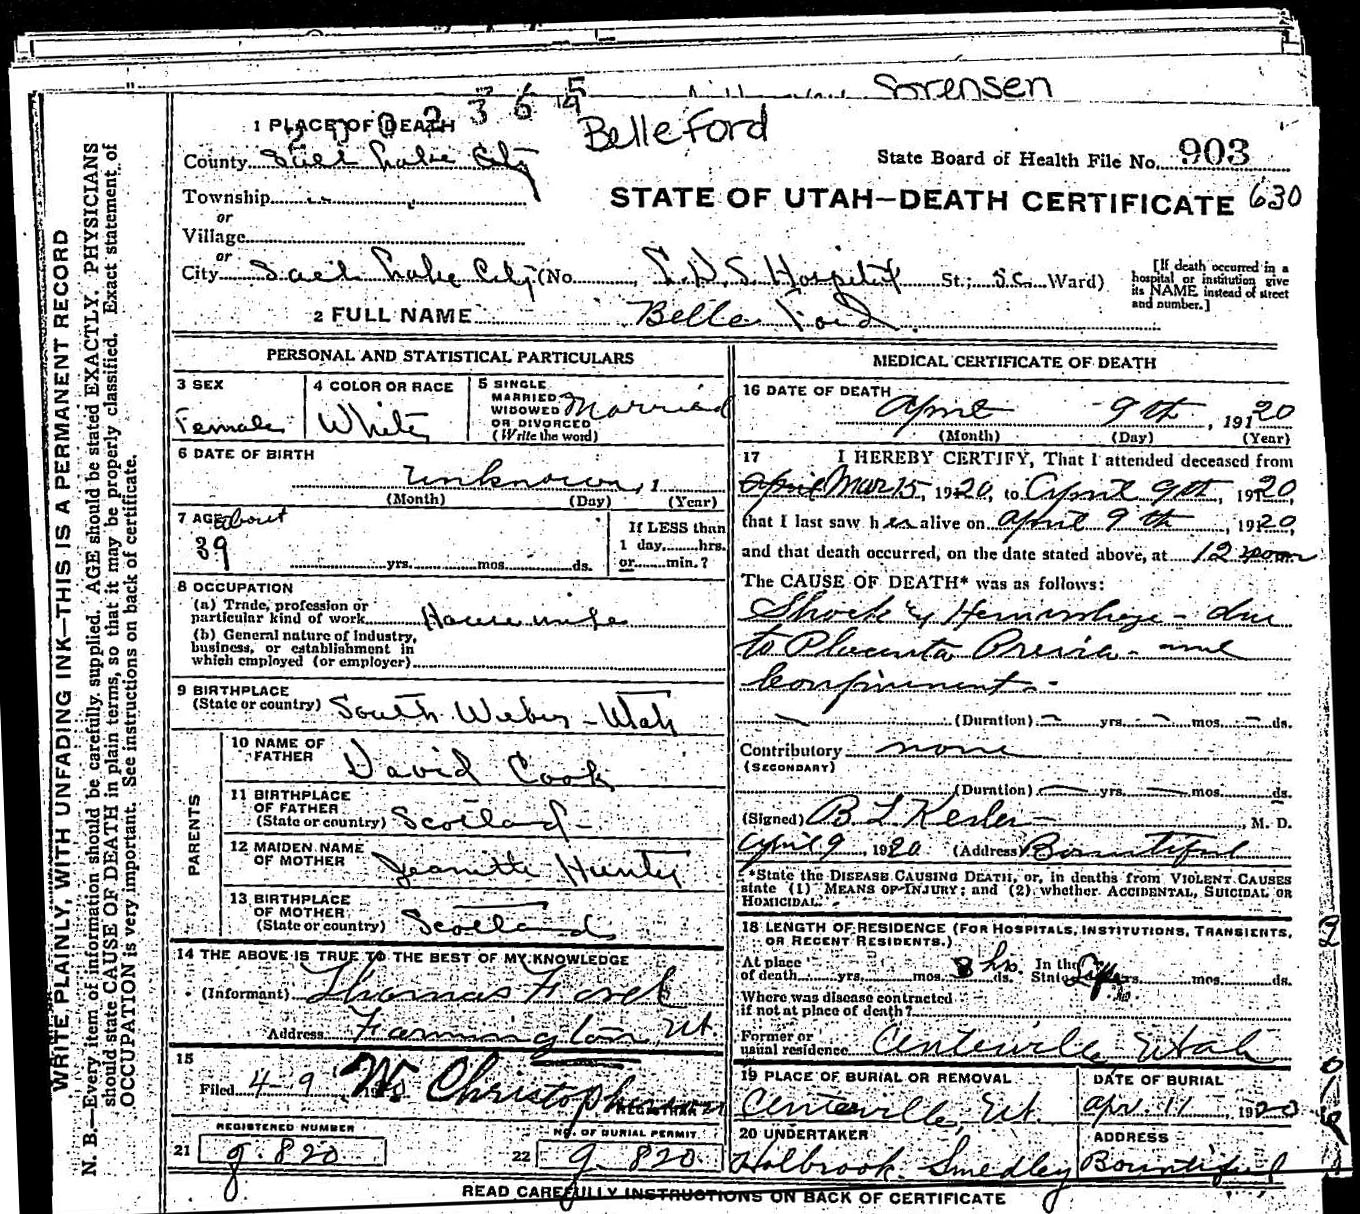 Sorensen
2 3 6
Belle Ford
1 PLACE OF DEATH
County Salt Lake City
State Board of Health File No. 903
Township
or
Village
or
STATE OF UTAH—DEATH CERTIFICATE 630
City Salt Lake City (No. L.D.S. Hospital St.; Ward)
[If death occurred in a hospital or institution give its NAME instead of street and number.]
2 FULL NAME Belle Ford
PERSONAL AND STATISTICAL PARTICULARS
3 SEX
Female
4 COLOR OR RACE
White
5 SINGLE
MARRIED
WIDOWED
OR DIVORCED
(Write the word)
Married
6 DATE OF BIRTH
unknown, 1
(Month) (Day) (Year)
7 AGE about
39
yrs. mos. ds.
If LESS than
1 day, hrs.
or min.?
8 OCCUPATION
(a) Trade, profession or
particular kind of work Housewife
(b) General nature of Industry,
business, or establishment in
which employed (or employer)
9 BIRTHPLACE
(State or country) South Weber - Utah
PARENTS
10 NAME OF
FATHER David Cook
11 BIRTHPLACE
OF FATHER
(State or country) Scotland
12 MAIDEN NAME
OF MOTHER Jeanette Hunter
13 BIRTHPLACE
OF MOTHER
(State or country) Scotland
14 THE ABOVE IS TRUE TO THE BEST OF MY KNOWLEDGE
(Informant) Thomas Ford
Address Farmington Ut.
15
Filed 4-9 1920 Christopherson
REGISTRAR
REGISTERED NUMBER
21 g. 820
NO. OF BURIAL PERMIT
22 g. 820
MEDICAL CERTIFICATE OF DEATH
16 DATE OF DEATH
April 9th, 19120
(Month) (Day) (Year)
17 I HEREBY CERTIFY, That I attended deceased from
April Mar 15, 1920, to April 9th, 1920,
that I last saw her alive on April 9th, 1920,
and that death occurred, on the date stated above, at 12 noon
The CAUSE OF DEATH* was as follows:
Shock & Hemorrhage - due
to Placenta Previa - and
Confinement -
(Duration) yrs. mos. ds.
Contributory none
(SECONDARY)
(Duration) yrs. mos. ds.
(Signed) B L Kesler, M. D.
April 9, 1920 (Address) Bountiful
*State the DISEASE CAUSING DEATH, or, in deaths from VIOLENT CAUSES
state (1) MEANS OF INJURY; and (2) whether ACCIDENTAL, SUICIDAL OR
HOMICIDAL.
18 LENGTH OF RESIDENCE (FOR HOSPITALS, INSTITUTIONS, TRANSIENTS,
OR RECENT RESIDENTS.)
At place
of death yrs. mos. 3 hrs. ds. In the
State Life yrs. mos. ds.
Where was disease contracted
if not at place of death?
Former or
usual residence Centerville Utah
19 PLACE OF BURIAL OR REMOVAL
Centerville, Ut.
DATE OF BURIAL
Apr. 11, 1920
20 UNDERTAKER
Holbrook Smedley
ADDRESS
Bountiful
READ CAREFULLY INSTRUCTIONS ON BACK OF CERTIFICATE
WRITE PLAINLY, WITH UNFADING INK—THIS IS A PERMANENT RECORD
N. B.—Every item of information should be carefully supplied. AGE should be stated EXACTLY. PHYSICIANS
should state CAUSE OF DEATH in plain terms, so that it may be properly classified. Exact statement of
OCCUPATION is very important. See instructions on back of certificate.